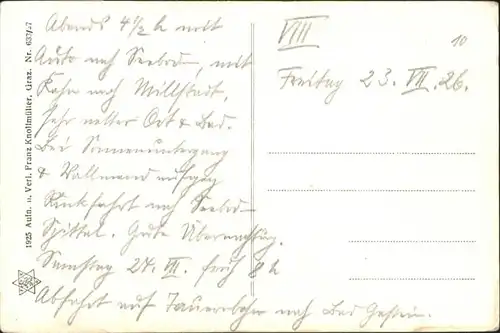 Abends 4 1/2 h mit
Auto nach Seebod–, mit
Kahn nach Millstadt,
sehr netter Ort & Bad.
Bei Sonnenuntergang
& Vollmond aufgang
Rückfahrt nach Seebod–
Spittal. Gute Übernachtung.
Samstag 24. VII. früh 8 h
Abfahrt auf Tauernbahn nach Bad Gastein.
VIII
10
Freitag 23. VII. 26.
1925 Aufn. u. Verl. Franz Knollmüller, Graz. Nr. 633/27